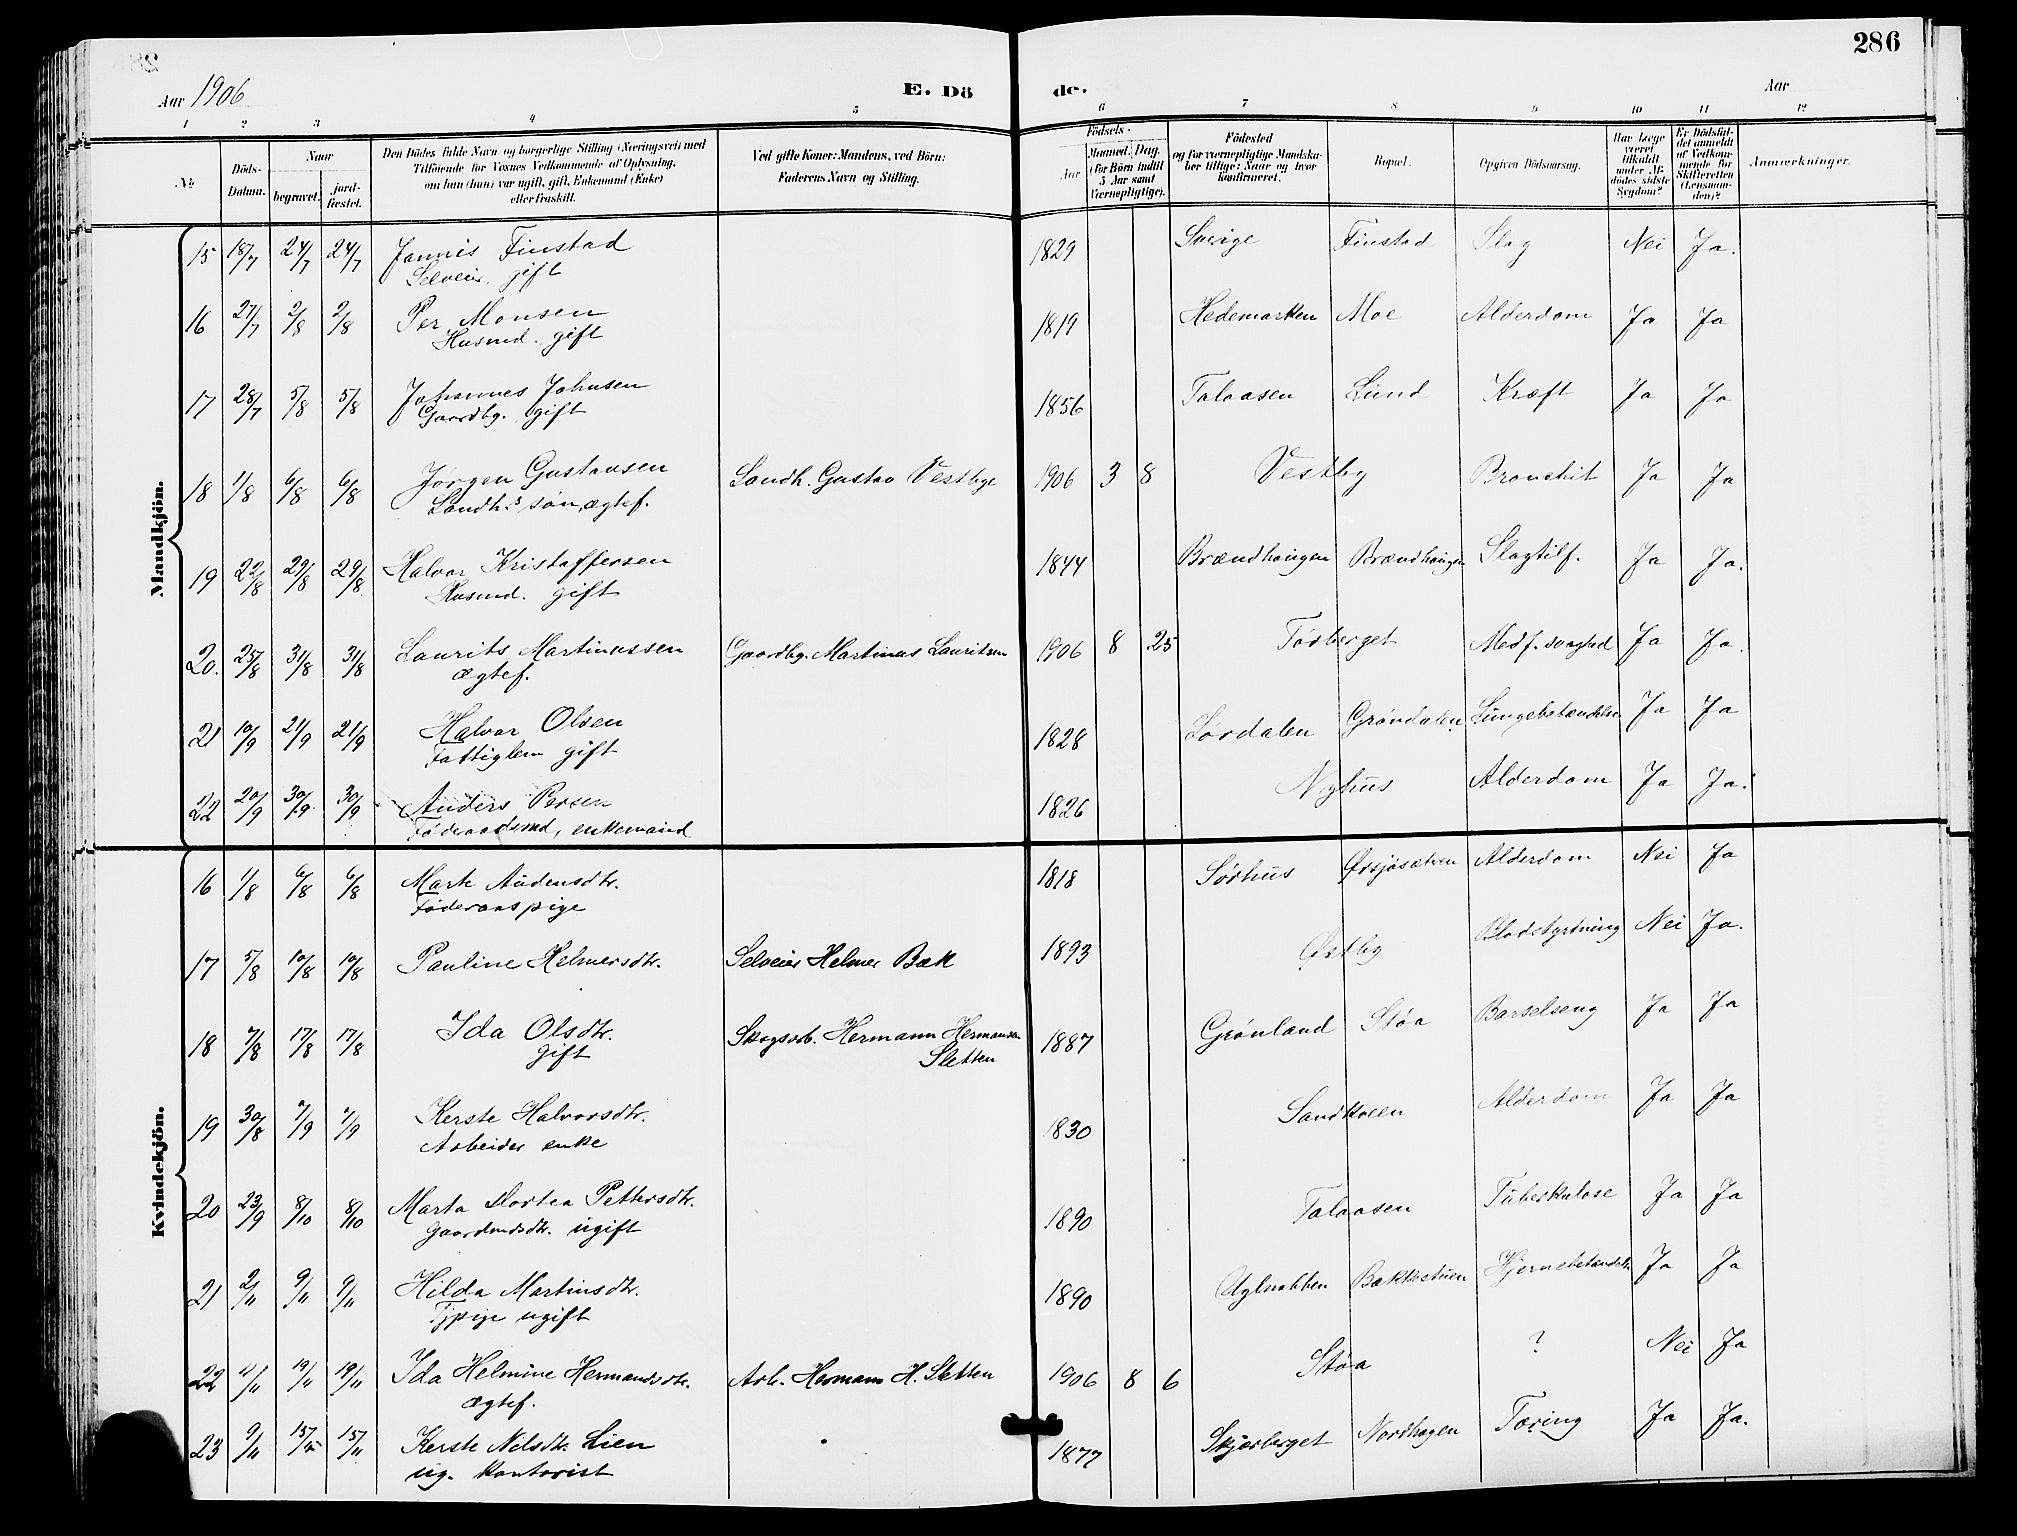 286
Aar 1906
E. Dö
de.
Aar
1 2 3 4 5 6 7 8 9 10 11 12
№
Döds-
Datum.
Naar
begravet.
jord-
fæstet.
Den Dödes fulde Navn og borgerlige Stilling (Næringsvei) med
Tilföiende for Voxnes Vedkommende af Oplysning,
om han (hun) var ugift, gift, Enkemand (Enke)
eller fraskilt.
Ved gifte Koner: Mandens, ved Börn:
Faderens Navn og Stilling.
Födsels-
Aar
Maaned. Dag.
(for Börn indtil
5 Aar samt
Værnepligtige).
Födested
og for værnepligtige Mandska-
ber tillige: Naar og hvor
konfirmeret.
Bopæl.
Opgiven Dödsaarsag.
Har Læge
været
tilkaldt
under Af-
dödes sidste
Sygdom?
Er Dödsfal-
det anmeldt
af Vedkom-
mende for
Skifteretten
(Lensman-
den)?
Anmærkninger.
Mandkjön.
15 18/7 24/7 24/7 Jannis Finstad 1829 Sverige Finstad Slag Nei Ja.
Selveier, gift
16 27/7 2/8 2/8 Per Monsen 1819 Hedemarken Moe Alderdom Ja Ja
Husmd. gift
17 28/7 5/8 5/8 Johannes Johnsen 1856 Talaasen Lund Kræft Ja Ja
Gaardbg. gift
18 1/8 6/8 6/8 Jørgen Gustavsen Landh. Gustav Vestbye 1906 3 8 Vestby Bronchit Ja Ja
Landh.s søn, ægtef.
19 22/8 29/8 29/8 Halvor Kristoffersen 1844 Brændhaugen Brændhaugen Slagtilf. Ja Ja.
Husmd. gift
20. 25/8 31/8 31/8 Laurits Martinussen Gaardbg. Martinus Lauritsen 1906 8 25 Tørberget Medf. svaghed Ja Ja.
ægtef.
21 10/9 21/9 21/9 Halvor Olsen 1828 Lørdalen Grøndalen Lungebetændelse Ja Ja
Fattiglem gift
22 20/9 30/9 30/9 Anders Persen 1826 Nyhus Alderdom Ja Ja.
Føderaadsmd, enkemand
Kvindekjön.
16 1/8 6/8 6/8 Marte Audensdtr. 1818 Sørhus Ørsjøsætren Alderdom Nei Ja
Føderaaspige
17 5/8 10/8 10/8 Pauline Helmersdtr. Selveier Helmer Bæk 1893 Østby Blodstyrtning Nei Ja.
18 7/8 17/8 17/8 Ida Olsdtr. Skogsarb. Hermann Hermansen 1887 Grønland Støa Barselseng Ja Ja
gift Sletten
19 30/8 7/9 7/9 Kerste Halvorsdtr. 1830 Sandkveen Alderdom Ja Ja
Arbeider enke
20 23/9 8/10 8/10 Marta Dortea Pettersdtr. 1890 Talaasen Tuberkulose Ja Ja
Gaardmdsdtr. ugift
21 2/11 9/11 9/11 Hilda Martinsdtr. 1890 Uglnabben Bækkestuen Hjernebetændelse Ja Ja
Tjpige ugift
22 11/11 19/11 19/11 Ida Helmine Hermansdtr. Arb. Hermann H. Sletten 1906 8 6 Støa ? Nei Ja
ægtef.
23 9/11 15/11 15/11 Kerste Nilsdtr. Lien 1877 Skjærberget Nordhagen Tæring Ja Ja.
ug. kontorist